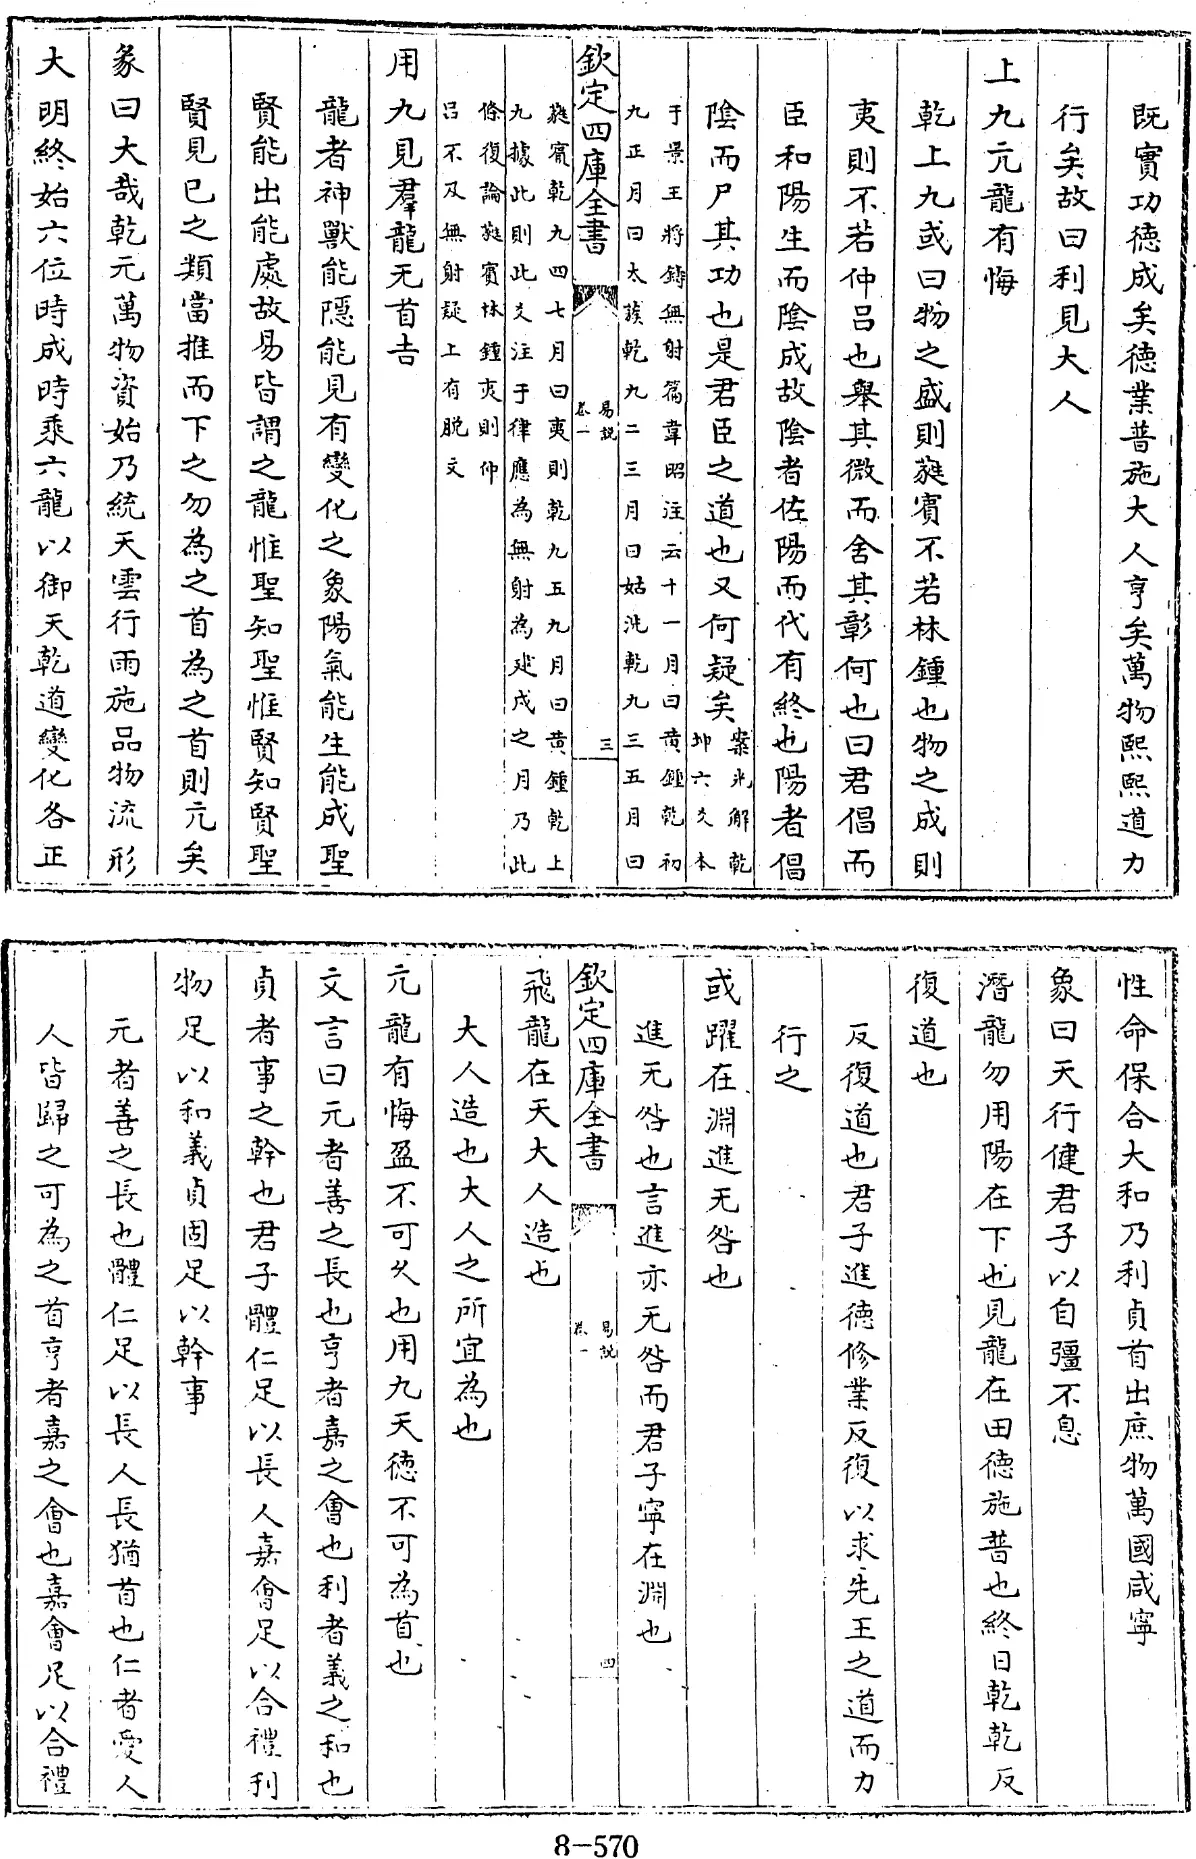 既實功德成矣德業普施大人亨矣萬物熙熙道力
行矣故曰利見大人
上九亢龍有悔
乾上九或曰物之盛則蕤賓不若林鍾也物之成則
夷則不若仲呂也舉其微而舍其彰何也曰君倡而
臣和陽生而陰成故陰者佐陽而代有終也陽者倡
陰而尸其功也是君臣之道也又何疑矣
案此解乾
坤六爻本
于景王將鑄無射篇韋昭注云十一月曰黃鍾乾初
九正月曰太蔟乾九二三月曰姑洗乾九三五月曰
欽定四庫全書
易說
卷一
三
蕤賓乾九四七月曰夷則乾九五九月曰黃鍾乾上
九據此則此爻注于律應為無射為建戌之月乃此
條復論蕤賓林鍾夷則仲
呂不及無射疑上有脫文
用九見羣龍无首吉
龍者神獸能隱能見有變化之象陽氣能生能成聖
賢能出能處故易皆謂之龍惟聖知聖惟賢知賢聖
賢見已之類當推而下之勿為之首為之首則亢矣
彖曰大哉乾元萬物資始乃統天雲行雨施品物流形
大明終始六位時成時乘六龍以御天乾道變化各正
性命保合大和乃利貞首出庶物萬國咸寧
象曰天行健君子以自彊不息
潛龍勿用陽在下也見龍在田德施普也終日乾乾反
復道也
反復道也君子進德修業反復以求先王之道而力
行之
或躍在淵進无咎也
進无咎也言進亦无咎而君子寧在淵也
欽定四庫全書
易說
卷一
四
飛龍在天大人造也
大人造也大人之所宜為也
亢龍有悔盈不可久也用九天德不可為首也
文言曰元者善之長也亨者嘉之會也利者義之和也
貞者事之幹也君子體仁足以長人嘉會足以合禮利
物足以和義貞固足以幹事
元者善之長也體仁足以長人長猶首也仁者愛人
人皆歸之可為之首亨者嘉之會也嘉會足以合禮
8-570